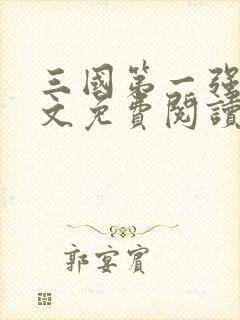 三國第一強
文免費閱讀
郭宴賓